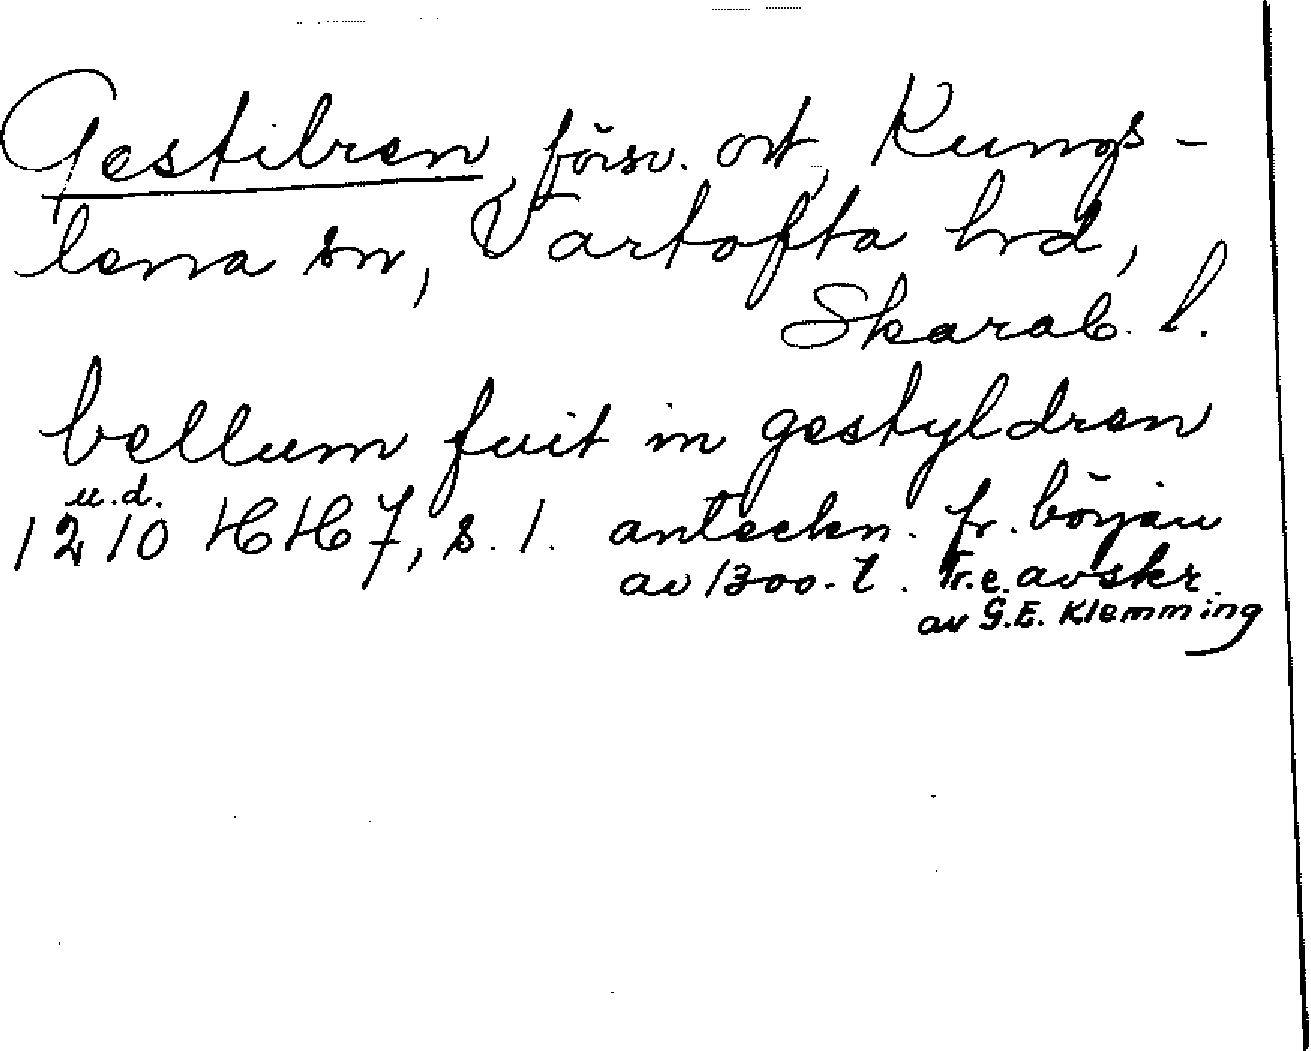 Gestilren, försv. ort, Kungs-
lena sn, Vartofta hrd,
Skarab. l.
bellum fuit in gestyldren
u.d.
1210 HH 7, s. 1. anteckn. fr. början
av 1300-t. Tr. e. avskr.
av G.E. Klemming